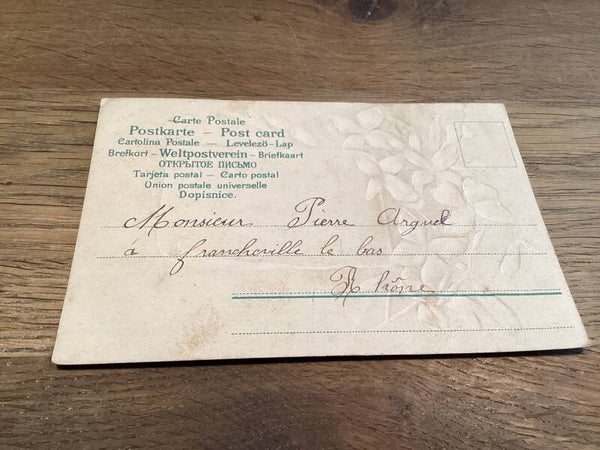 Carte Postale
Postkarte – Post card
Cartolina Postale — Levelező-Lap
Brefkort – Weltpostverein – Briefkaart
ОТКРЫТОЕ ПИСЬМО
Tarjeta postal – Carto postal
Union postale universelle
Dopisnice.
Monsieur Pierre Arguel
à francheville le bas
Rhône